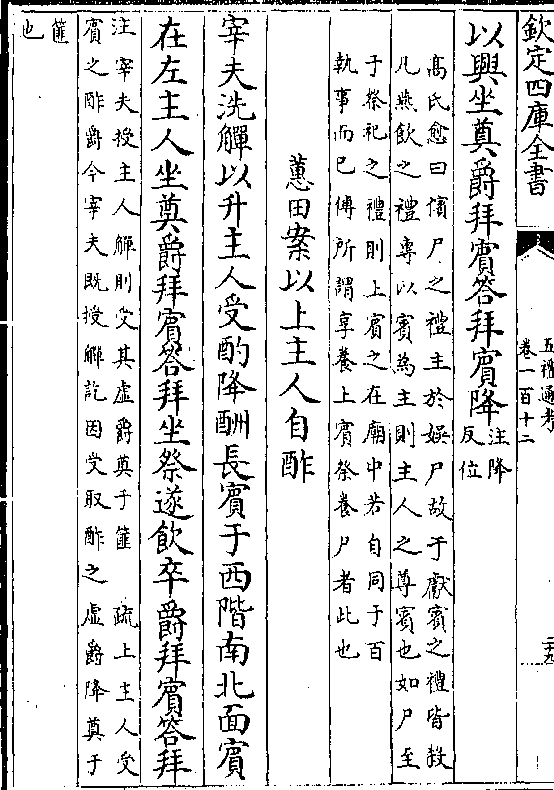 欽定四庫全書
五禮通考
卷一百十二
二九
以興坐奠爵拜賓答拜賓降注降
反位
高氏愈曰儐尸之禮主於娱尸故于獻賓之禮皆殺
凡燕飲之禮專以賓為主則主人之尊賓也如尸至
于祭祀之禮則上賓之在廟中若自同于百
執事而已傅所謂享養上賓祭養尸者此也
蕙田案以上主人自酢
宰夫洗觶以升主人受酌降酬長賓于西階南北面賓
在左主人坐奠爵拜賓答拜坐祭遂飲卒爵拜賓答拜
注宰夫授主人觶則受其虚爵奠于篚 疏上主人受
賓之酢爵今宰夫既授觶訖因受取酢之虚爵降奠于
篚
也